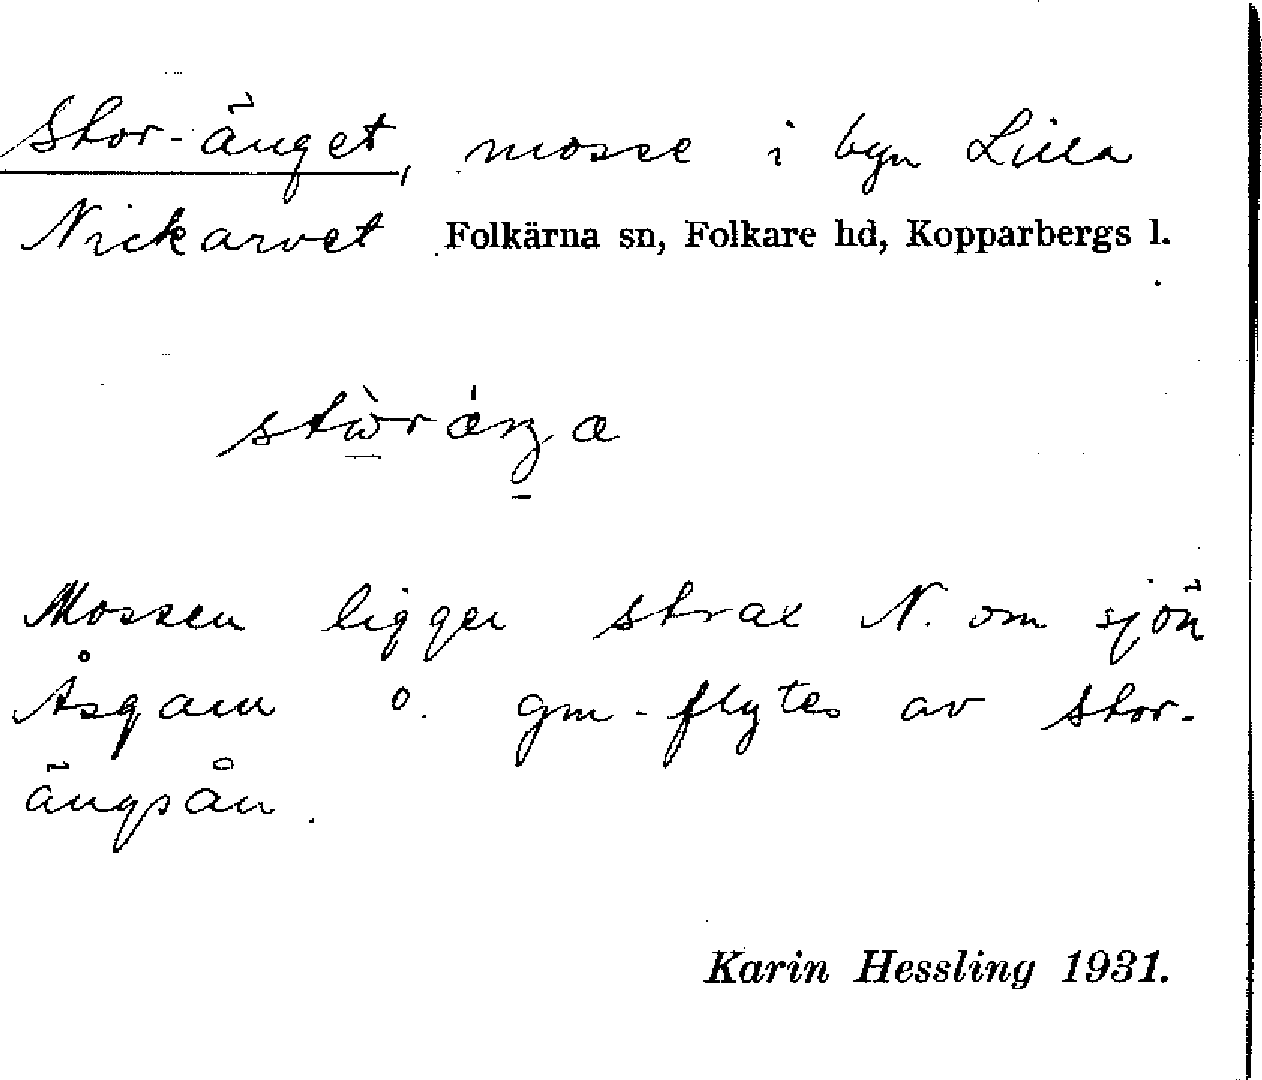 Stor-änget, mosse i byn Lilla
Nickarvet Folkärna sn, Folkare hd, Kopparbergs l.
Mossen ligger strax N. om sjön
Åsgarn o. gm-flytes av Stor-
ängsån.
Karin Hessling 1931.